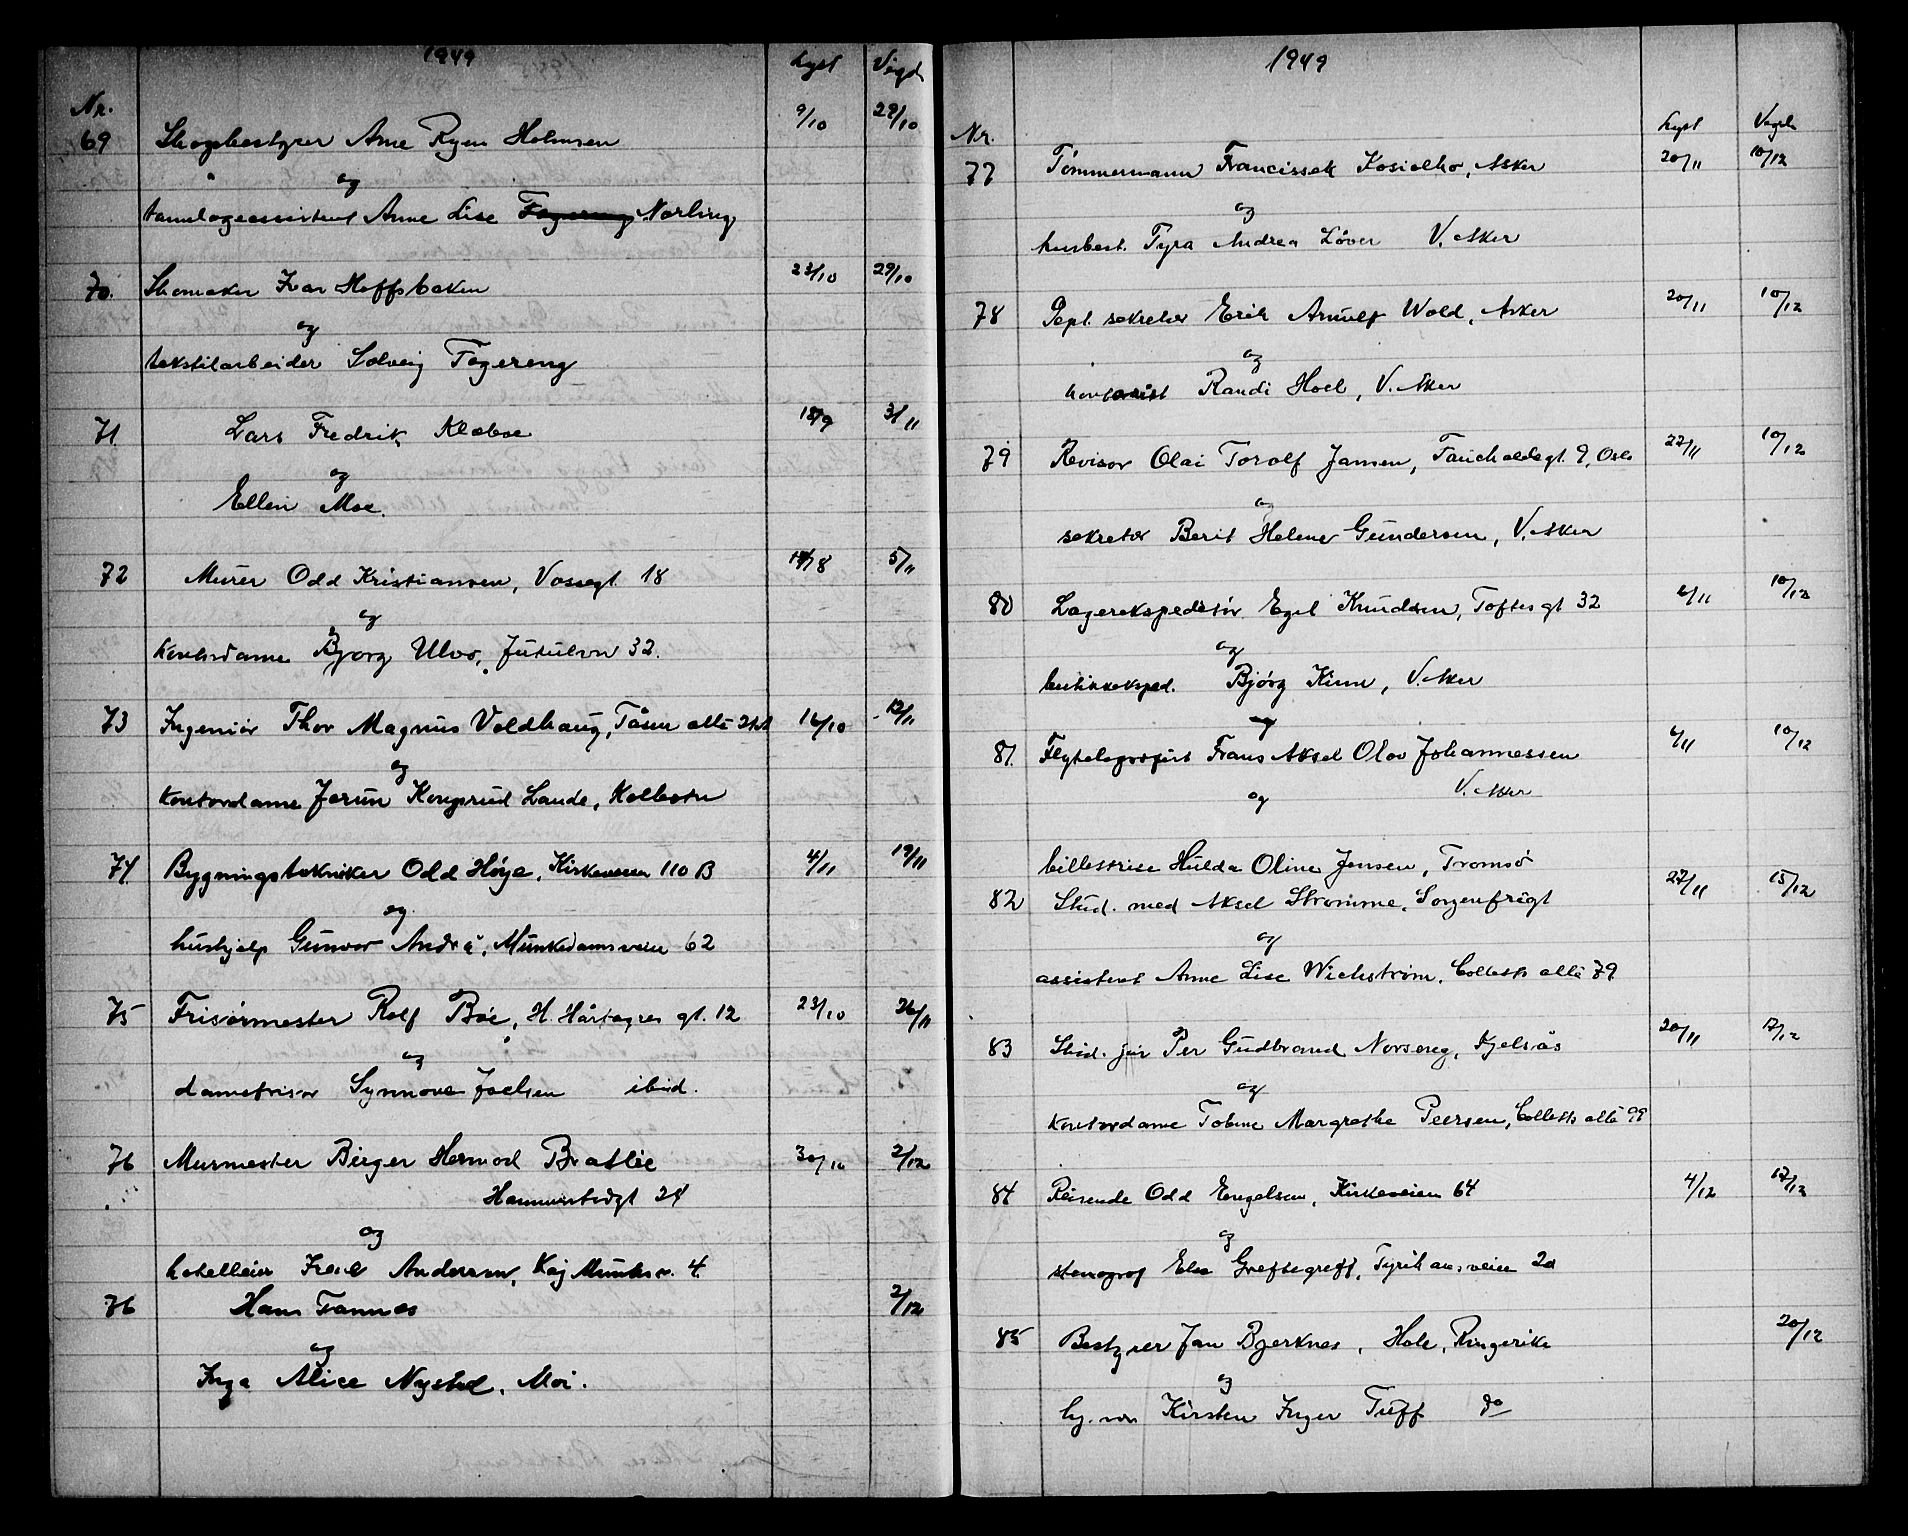 1949
Lyst Vigd
Nr.
69 Skogbestyrer Arne Ryen Holmsen 9/10 29/10
og
tannlegeassistent Anne Lise Norling
70. Skomaker Ivar Hoffsbakken 23/10 29/10
og
tekstilarbeider Solveig Fagereng
71 Lars Fredrik Klæboe 18/9 3/11
og
Ellen Moe.
72 Murer Odd Kristiansen, Vossegt. 18 14/8 5/11
og
kontordame Bjørg Ulvo, Jutulvn 32.
73 Ingeniør Thor Magnus Voldhaug, Tåsen allé 16/10 12/11
og
Kontordame Jorun Kongsrud Lande, Kolbotn
74. Bygningstekniker Odd Høye, Kirkeveien 110 B 4/11 19/11
og
hushjelp Gunvor André, Munkedamsveien 62
75 Frisørmester Rolf Bøe, H. Hårfagres gt. 12 23/10 26/11
og
damefrisør Synnøve Joelsen ibid.
76 Murmester Birger Hermod Bratlie 30/10 2/12
Hammerstadgt 24
og
hotelleier Andersen, Kaj Munksv. 4.
76 Hans Tannæs 2/12
og
Inga Alice Nystad, Moi.
1949
Nr. Lyst Vigde
77 Tømmermann Francissek Kosielko, Asker 20/11 10/12
og
husbest. Tyra Andrea Løver V. Aker
78 Dept. sekretær Erik Arnulf Wold, Asker 20/11 10/12
og
kontorist Randi Hoel, V. Aker
79 Revisor Olai Torolf Jansen, 9, Oslo 27/11 10/12
og
sekretær Berit Helene Gundersen, V. Aker
80 Lagerekspeditør Egil Knudsen, Toftes gt 32 6/11 10/12
og
butikkeksped. Bjørg Kinn, V. Aker
og
81. Flytelegrafist Frans Aksel Olav Johannessen 6/11 10/12
V. Aker
og
billettrise Hulda Oline Jensen, Tromsø
82 Stud. med Aksel Strømme, Sorgenfrigt 27/11 15/12
og
assistent Anne Lise Wichstrøm, Colletts allé 79
83 Stud. jur Per Gudbrand Norseng, Kjelsås 20/11 17/12
og
Kontordame Tobine Margrethe Peersen, Colletts allé 99
84 Reisende Odd Engelsen, Kirkeveien 64 4/12 17/12
og
stenograf Else Greftegreff, Tyrihansveien 20
85 Bestyrer Jan Bjerknes, Hole, Ringerike 20/12
og
Kirsten Inger Tuff do